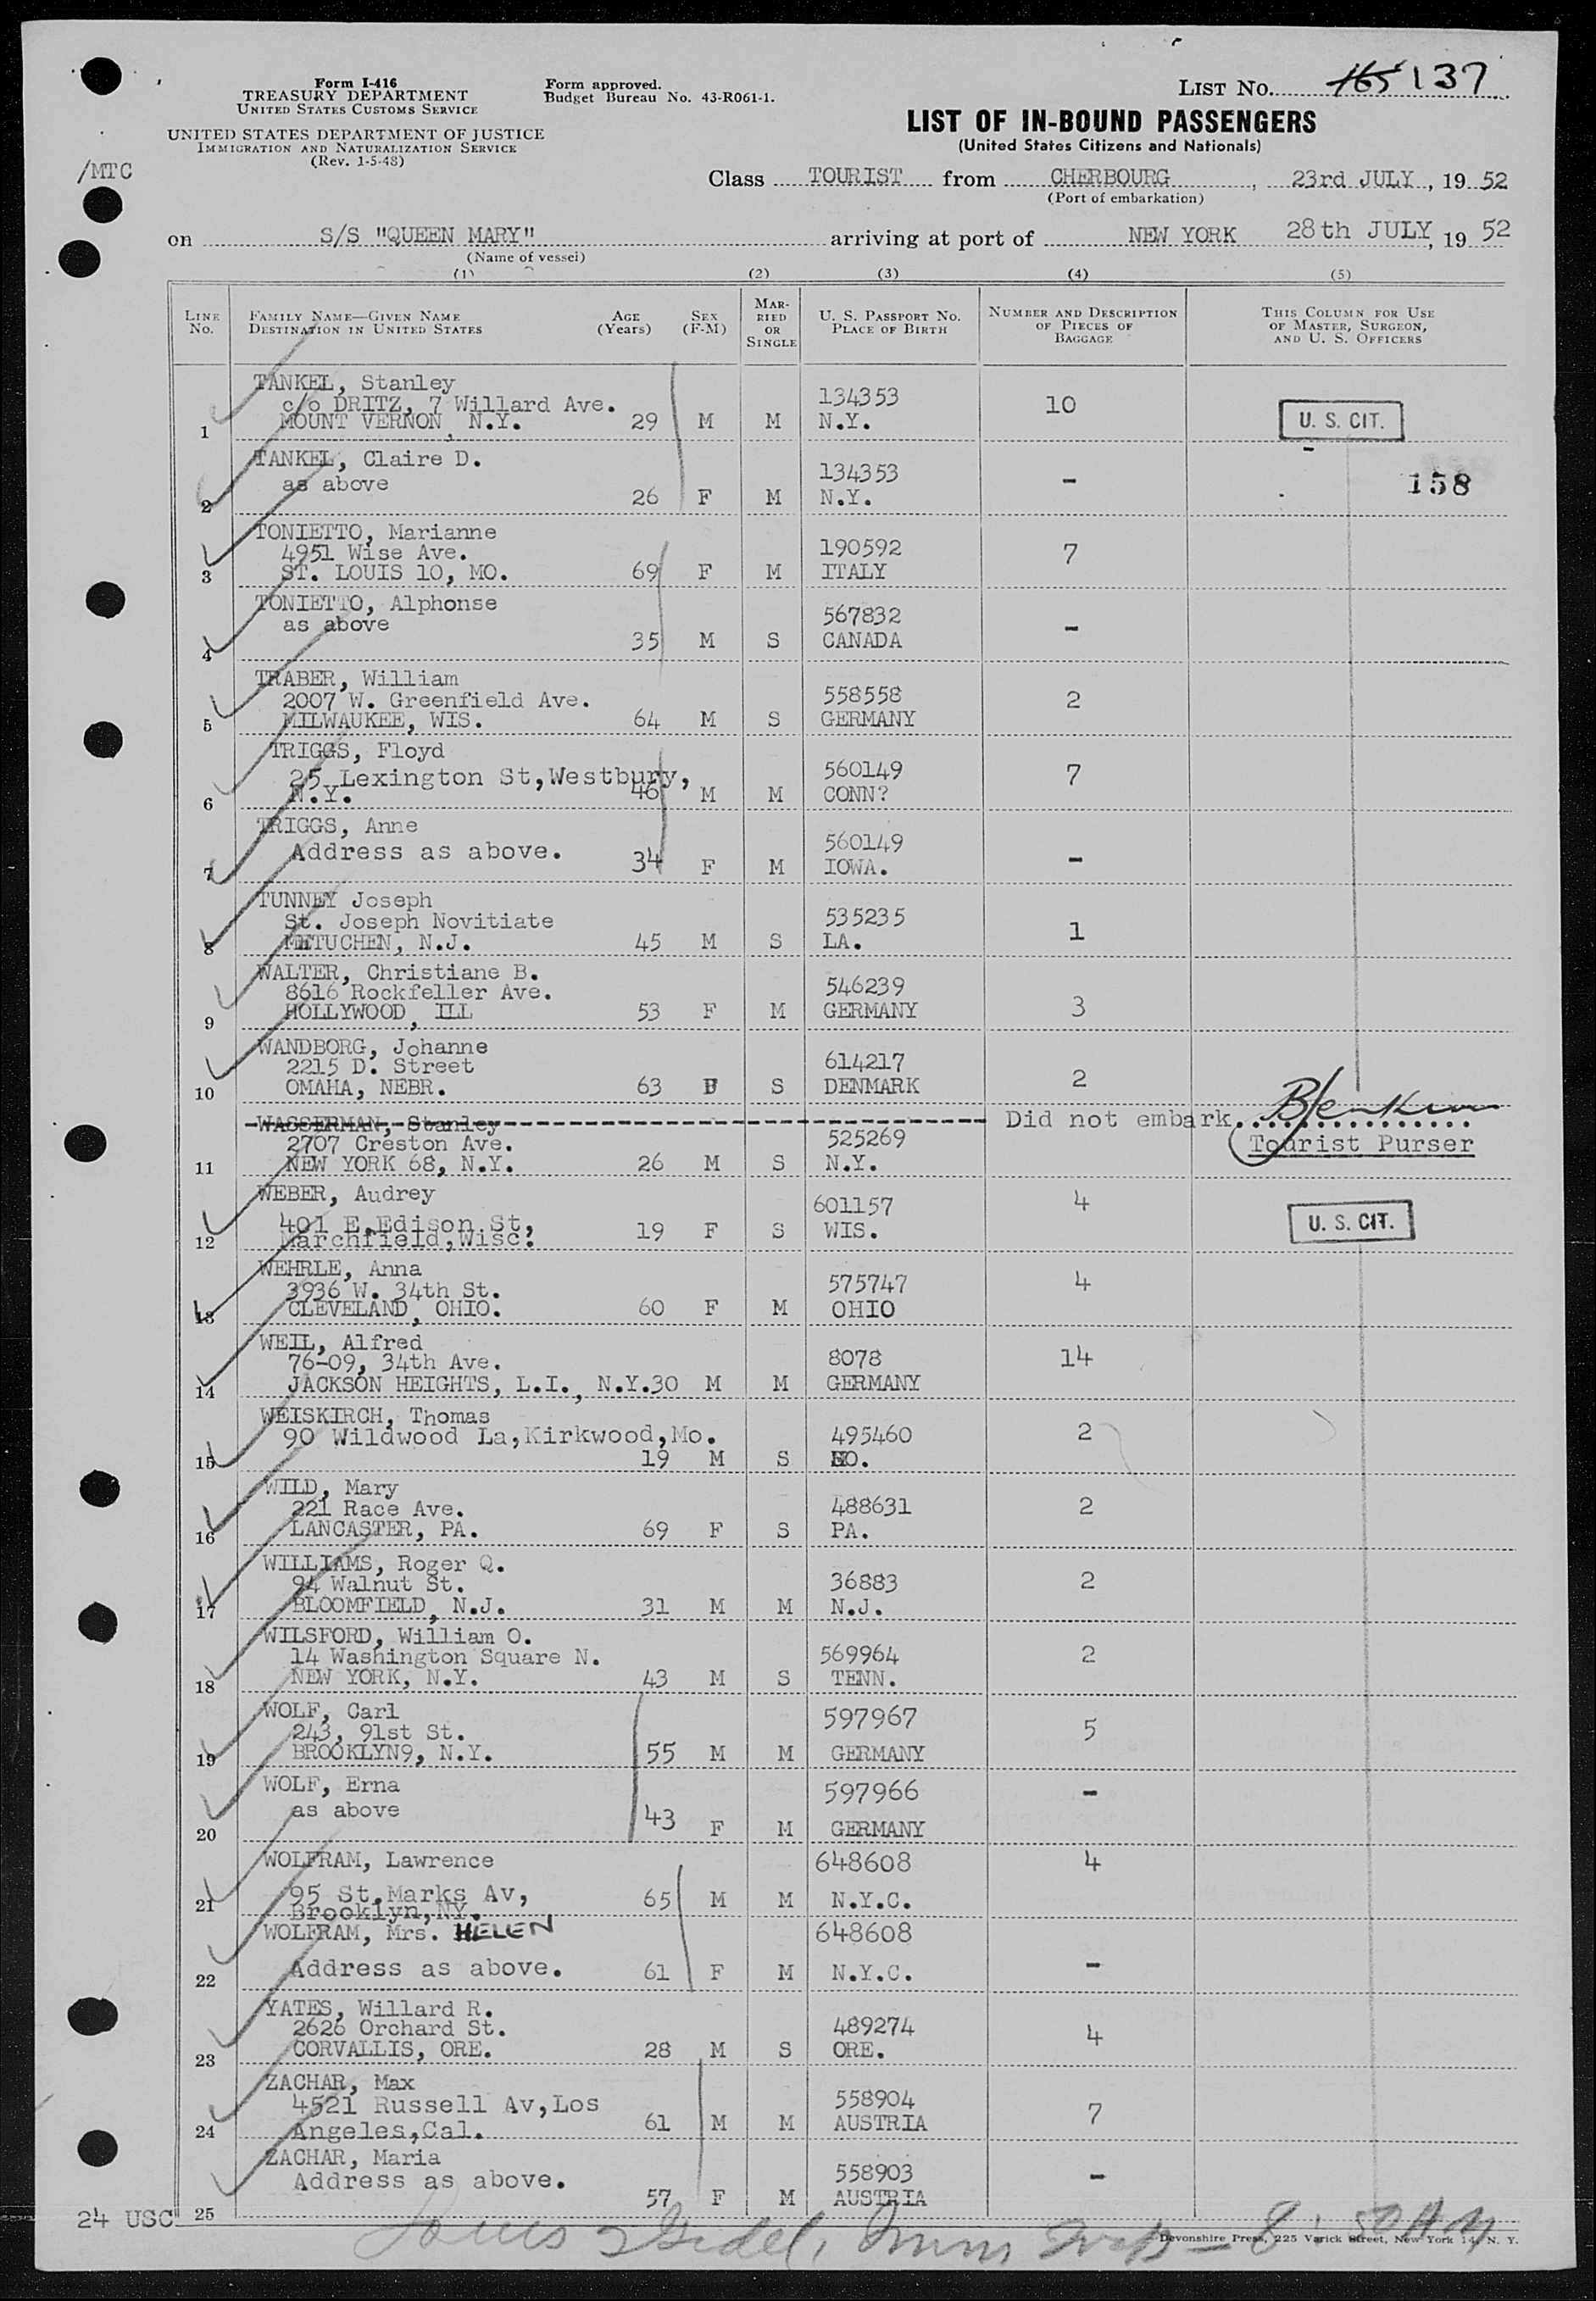 Form I-416
TREASURY DEPARTMENT
UNITED STATES CUSTOMS SERVICE
UNITED STATES DEPARTMENT OF JUSTICE
IMMIGRATION AND NATURALIZATION SERVICE
(Rev. 1-5-48)
Form approved.
Budget Bureau No. 43-R061-1.
LIST No. 165 137
LIST OF IN-BOUND PASSENGERS
(United States Citizens and Nationals)
/MTC
Class TOURIST from CHERBOURG, 23rd JULY, 19 52
(Port of embarkation)
on S/S "QUEEN MARY" arriving at port of NEW YORK 28th JULY, 19 52
(Name of vessel)
(1) (2) (3) (4) (5)
LINE No.
FAMILY NAME—GIVEN NAME
DESTINATION IN UNITED STATES
AGE (Years)
SEX (F-M)
MARRIED OR SINGLE
U. S. PASSPORT NO.
PLACE OF BIRTH
NUMBER AND DESCRIPTION OF PIECES OF BAGGAGE
THIS COLUMN FOR USE OF MASTER, SURGEON, AND U. S. OFFICERS
TANKEL, Stanley
c/o DRITZ, 7 Willard Ave. 134353 10
1 MOUNT VERNON, N.Y. 29 M M N.Y. U. S. CIT.
TANKEL, Claire D. 134353
2 as above 26 F M N.Y. - 158
TONIETTO, Marianne
4951 Wise Ave. 190592 7
3 ST. LOUIS 10, MO. 69 F M ITALY
TONIETTO, Alphonse 567832
4 as above 35 M S CANADA -
TRABER, William
2007 W. Greenfield Ave. 558558 2
5 MILWAUKEE, WIS. 64 M S GERMANY
TRIGGS, Floyd
25 Lexington St,Westbury, 560149 7
6 N.Y. 46 M M CONN?
TRIGGS, Anne 560149
7 Address as above. 34 F M IOWA. -
TUNNEY Joseph
St. Joseph Novitiate 535235 1
8 METUCHEN, N.J. 45 M S LA.
WALTER, Christiane B.
8616 Rockfeller Ave. 546239
9 HOLLYWOOD, ILL 53 F M GERMANY 3
WANDBORG, Johanne
2215 D. Street 614217 2
10 OMAHA, NEBR. 63 F S DENMARK
WASSERMAN, Stanley Did not embark.
2707 Creston Ave. 525269 Tourist Purser
11 NEW YORK 68, N.Y. 26 M S N.Y.
WEBER, Audrey 601157 4
401 E.Edison St,
12 Marchfield,Wisc. 19 F S WIS. U. S. CIT.
WEHRLE, Anna
3936 W. 34th St. 575747 4
13 CLEVELAND, OHIO. 60 F M OHIO
WEIL, Alfred
76-09, 34th Ave. 8078 14
14 JACKSON HEIGHTS, L.I., N.Y.30 M M GERMANY
WEISKIRCH, Thomas
90 Wildwood La,Kirkwood,Mo. 495460 2
15 19 M S MO.
WILD, Mary
221 Race Ave. 488631 2
16 LANCASTER, PA. 69 F S PA.
WILLIAMS, Roger Q.
94 Walnut St. 36883 2
17 BLOOMFIELD, N.J. 31 M M N.J.
WILSFORD, William O.
14 Washington Square N. 569964 2
18 NEW YORK, N.Y. 43 M S TENN.
WOLF, Carl
243, 91st St. 597967 5
19 BROOKLYN9, N.Y. 55 M M GERMANY
WOLF, Erna 597966 -
20 as above 43 F M GERMANY
WOLFRAM, Lawrence 648608 4
95 St.Marks Av,
21 Brooklyn,NY. 65 M M N.Y.C.
WOLFRAM, Mrs. HELEN 648608
22 Address as above. 61 F M N.Y.C. -
YATES, Willard R.
2626 Orchard St. 489274 4
23 CORVALLIS, ORE. 28 M S ORE.
ZACHAR, Max
4521 Russell Av,Los 558904 7
24 Angeles,Cal. 61 M M AUSTRIA
ZACHAR, Maria
Address as above. 558903 -
25 57 F M AUSTRIA
24 USC
Devonshire Press, 225 Varick Street, New York 14, N. Y.